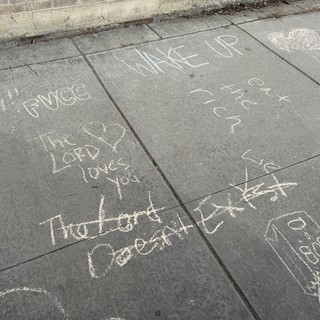 WAKE UP
eat
the
rich
The
LORD
loves
you
The Lord
Doesn't Exist